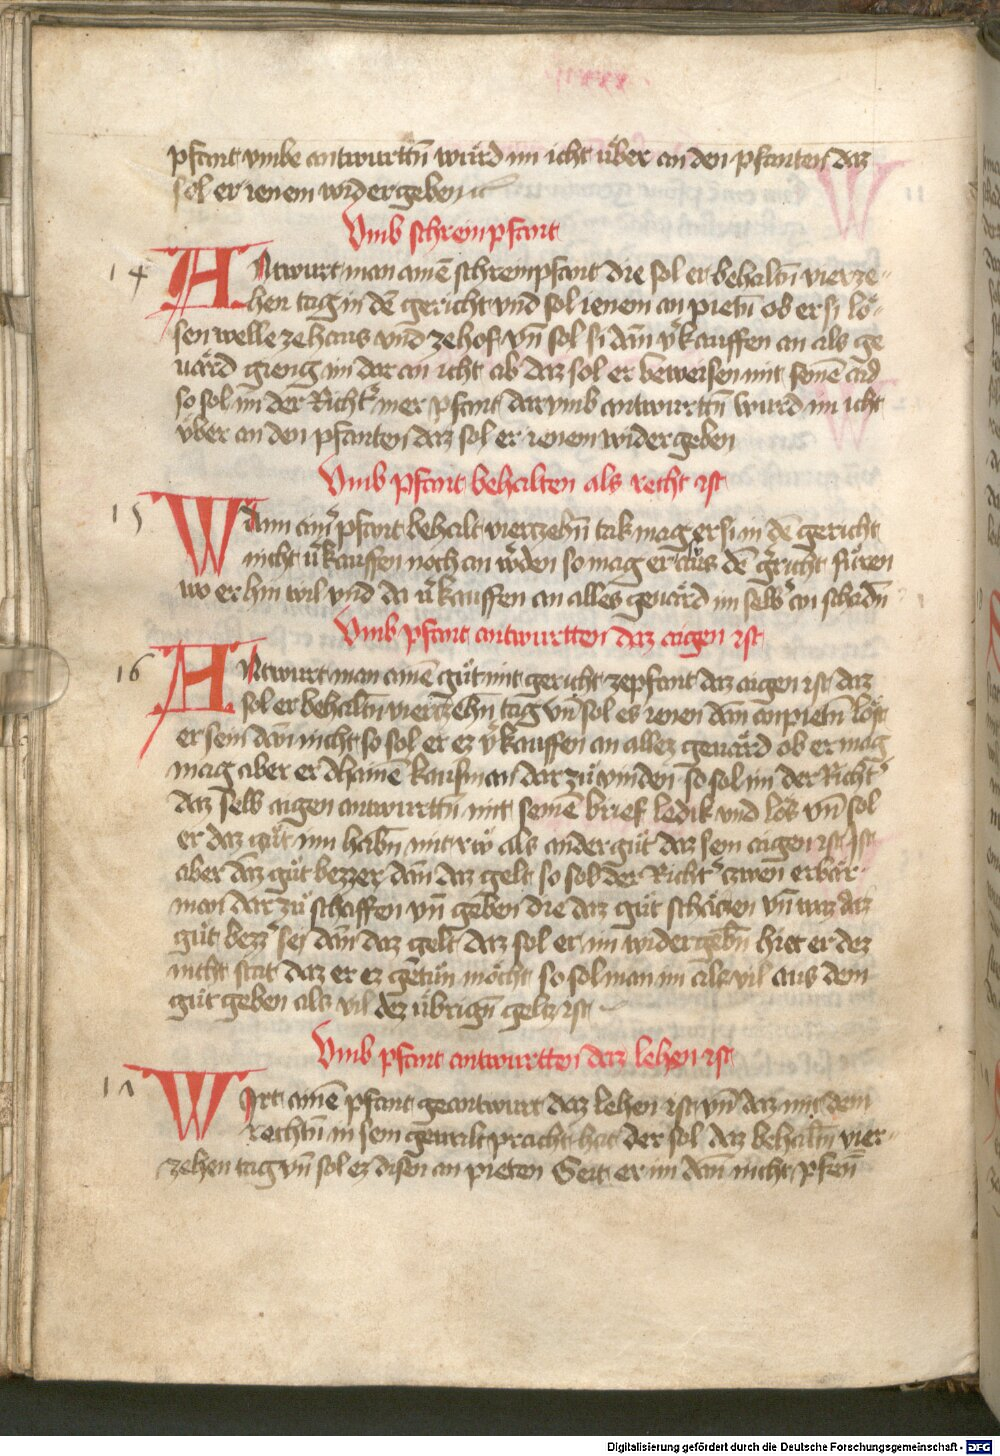 pfant vmbe antwurttn̄ wu̇rd im icht u̇ber an den pfanten daz
sol er ienem wider geben
Vmb schrempfant
14 ANtwurt man ainē schrempfant die sol er behaltn̄ vierze-
hen tag in dē gericht vnd sol ienem an pietn̄ ob er si lo̊-
sen welle ze haus vnd ze hof vn̄ sol si dan̄ v̓kauffen an als ge
uård gieng im dar an icht ab daz sol er beweisen mit seinē aid
so sol im der Richt̓ mer pfant dar vmb antwurttn̄ wurd im icht
vber an den pfanten daz sol er ienem wider geben
Vmb pfant behalten als recht ist
15 Wann ain̓ pfant behalt vierzehn̄ tak mag er si in dē gericht
nicht v̓kauffen noch an w̓den so mag er aus dē g̓richt fůren
wo er hin wil vnd da v̓kauffen an alles geuård im selb̓ an schadn̄
Vmb pfant antwurtten daz aigen ist
16 ANtwurt man ainē gůt mit gericht ze pfant daz aigen ist daz
sol er behaltn̄ vierzehn̄ tag vn̄ sol es ienen dan̄ anpietn̄ lo̊st
er sein dan̄ nicht so sol er ez v̓kauffen an allez geuård ob er mag
mag aber er dhainē kaufman dar zů vinden so sol im der Richt̓
daz selb aigen antwurttn̄ mit seinē brief ledik vnd lo̊s vn̄ sol
er daz gůt inn habn̄ mit rw̓ als ander gůt daz sein aigen ist Ist
aber daz gůt bezzer dan̄ daz gelt so sol der Richt̓ zwen erbår
man dar zů schaffen vn̄ geben die daz gůt schåczen vn̄ waz daz
gůt bezz̓ sei dan̄ daz gelt daz sol er im wider gebn̄ hiet er dez
nicht stat daz er ez getůn mo̊cht so sol man im als vil aus dem
gůt geben als vil dez u̇brign̄ geltz ist
Vmb pfant antwurtten daz lehen ist
17 WIrt ainē pfant geantwurt daz lehen ist vn̄ daz mit dem
rechtn̄ in sein gewalt pracht hat der sol daz behaltn̄ vier-
zehen tag vn̄ sol ez disen an pieten Geit er im dan̄ nicht pfen̄
Digitalisierung gefördert durch die Deutsche Forschungsgemeinschaft - DFG